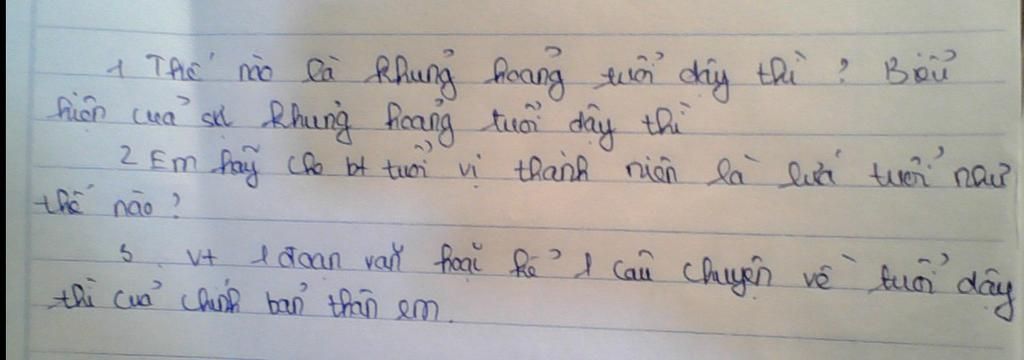 1 Thế nào là khủng hoảng tuổi dậy thì ? Biểu
hiện của sự khủng hoảng tuổi dậy thì
2 Em hãy cho bt tuổi vị thành niên là lứa tuổi như
thế nào ?
3. Vt 1 đoạn văn hoặc kể 1 câu chuyện về tuổi dậy
thì của chính bản thân em.